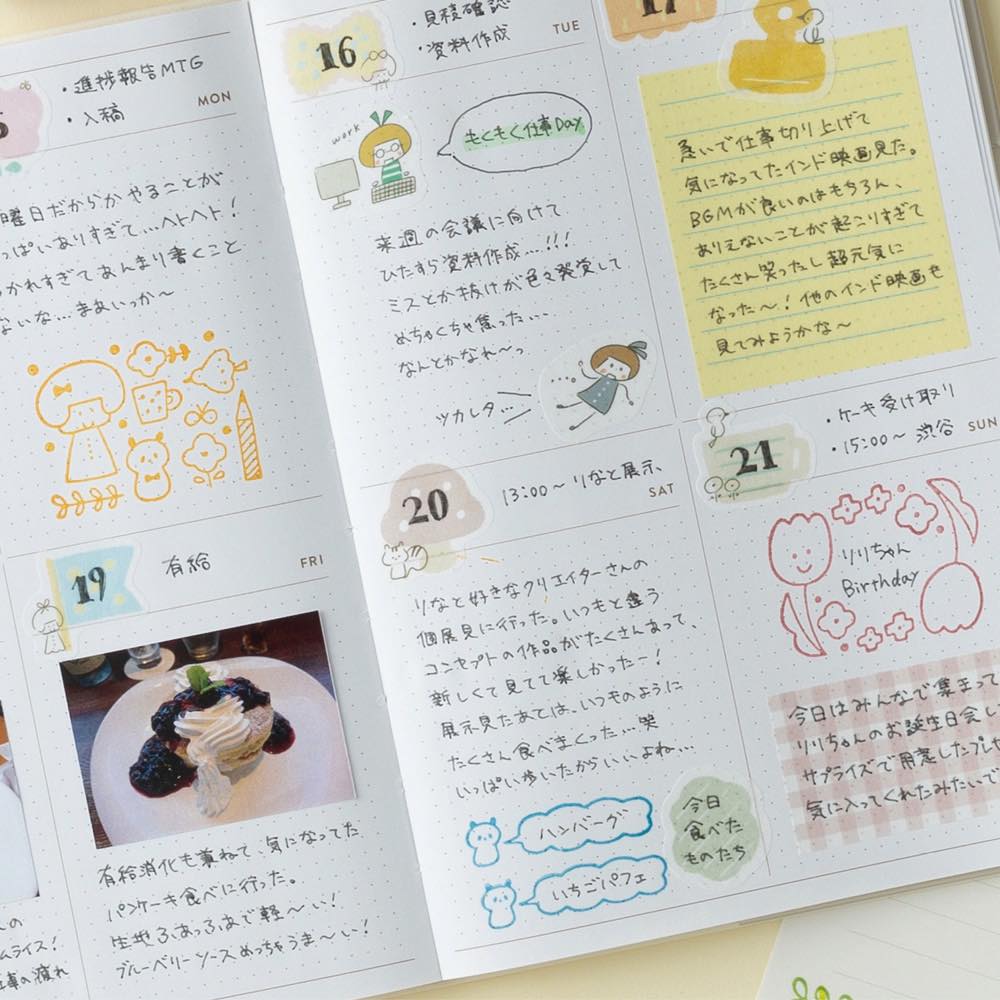 ・進捗報告MTG
・入稿
MON
曜日だからか やることが
っぱいありすぎて…ヘトヘト!
かれすぎて あんまり書くこと
ないな… まぁいっか〜
16
・見積確認
・資料作成
TUE
work
もくもく仕事Day
来週の会議に向けて
ひたすら資料作成…!!!
ミスとか抜けが色々発覚して
めちゃくちゃ焦った…
なんとかなれ〜っ
ツカレタ…
17
急いで仕事切り上げて
気になってたインド映画見た。
BGMが良いのはもちろん、
ありえないことが起こりすぎて
たくさん笑ったし超元気に
なった〜! 他のインド映画も
見てみようかな〜
19
有給
FRI
有給消化も兼ねて、気になってた
パンケーキ食べに行った。
生地ふあっふあで軽〜い!
ブルーベリーソースめっちゃうま〜い!
ムライス!
事の疲れ
20
13:00〜 りなと展示、
SAT
りなと好きなクリエイターさんの
個展見に行った。いつもと違う
コンセプトの作品がたくさんあって、
新しくて見てて楽しかったー!
展示見たあとは、いつものように
たくさん食べまくった…笑
いっぱい歩いたからいいよね…
ハンバーグ
いちごパフェ
今日
食べた
ものたち
21
・ケーキ受け取り
・15:00〜 渋谷
SUN
りりちゃん
Birthday
今日はみんなで集まって
りりちゃんのお誕生日会し
サプライズで用意したプレゼ
気に入ってくれたみたいで